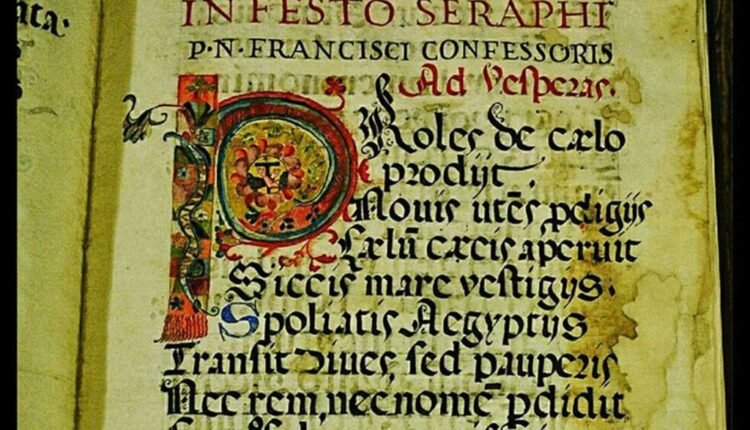 IN FESTO SERAPHI
P·N·FRANCISCI CONFESSORIS
Ad Vesperas.
PRoles de cælo
prodijt.
Nouis utẽs ꝑdigijs
Cælũ cæcis aperuit
Siccis mare vestigijs.
Spoliatis Aegyptijs
Transit Diues, sed pauperis
Nec rem, nec nomẽ ꝑdidit